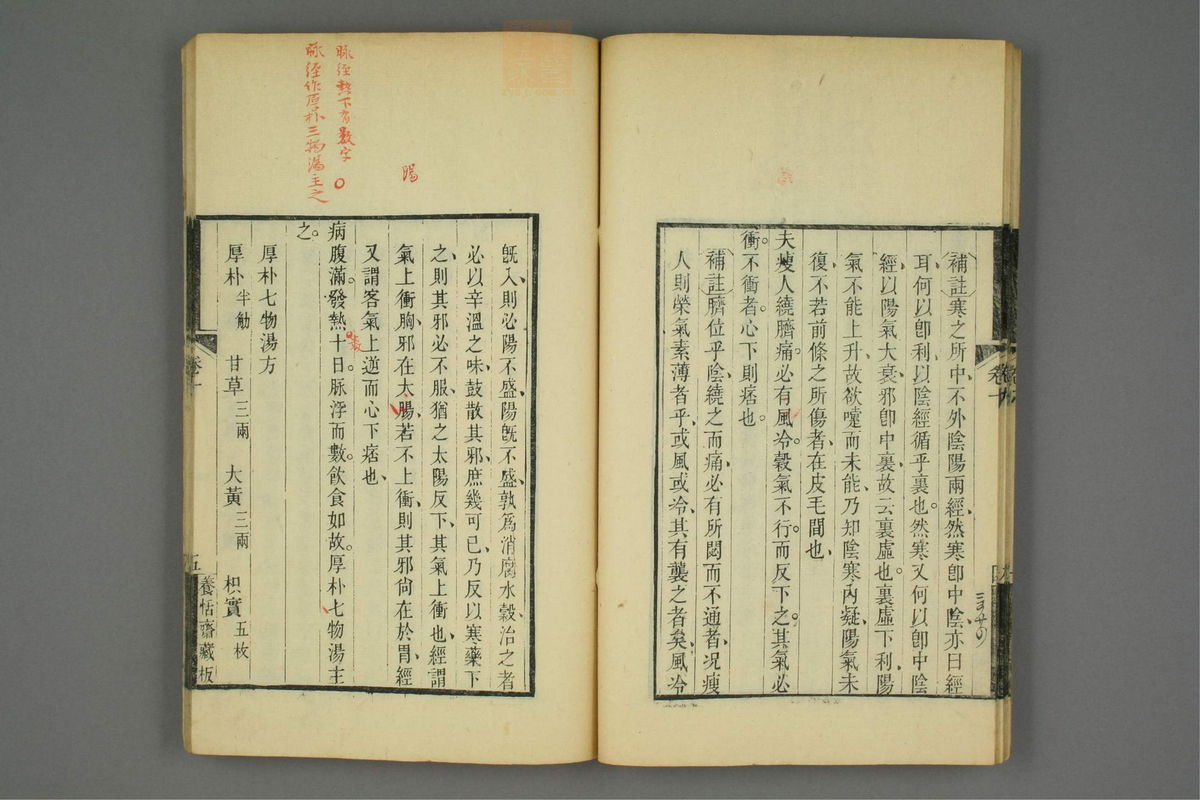 補註寒之所中、不外陰陽兩經、然寒卽中陰、亦曰經
耳、何以卽利、以陰經循乎裏也。然寒又何以卽中陰
經、以陽氣大衰、邪卽中裏、故云裏虛也。裏虛下利、陽
氣不能上升、故欲嚏而未能、乃知陰寒內凝、陽氣未
復、不若前條之所傷者、在皮毛間也、
夫瘦人繞臍痛。必有風冷。穀氣不行。而反下之。其氣必
衝。不衝者。心下則痞也。
補註臍位乎陰、繞之而痛、必有所悶而不通者、况瘦
人則榮氣素薄者乎、或風或冷、其有襲之者矣、風冷
卷十
脉經熱下有數字○
脉經作厚朴三物湯主之
腸
旣入、則必陽不盛、陽旣不盛、孰爲消腐水穀、治之者
必以辛溫之味、鼓散其邪、庶幾可已、乃反以寒藥下
之、則其邪必不服、猶之太陽反下、其氣上衝也、經謂
氣上衝胸、邪在大腸、若不上衝、則其邪尙在於胃、經
又謂客氣上逆而心下痞也、
病腹滿。發熱十日。脉浮而數。飲食如故。厚朴七物湯主
之。
厚朴七物湯方
厚朴半觔 甘草三兩 大黃三兩 枳實五枚
卷十 五 養恬齋藏板